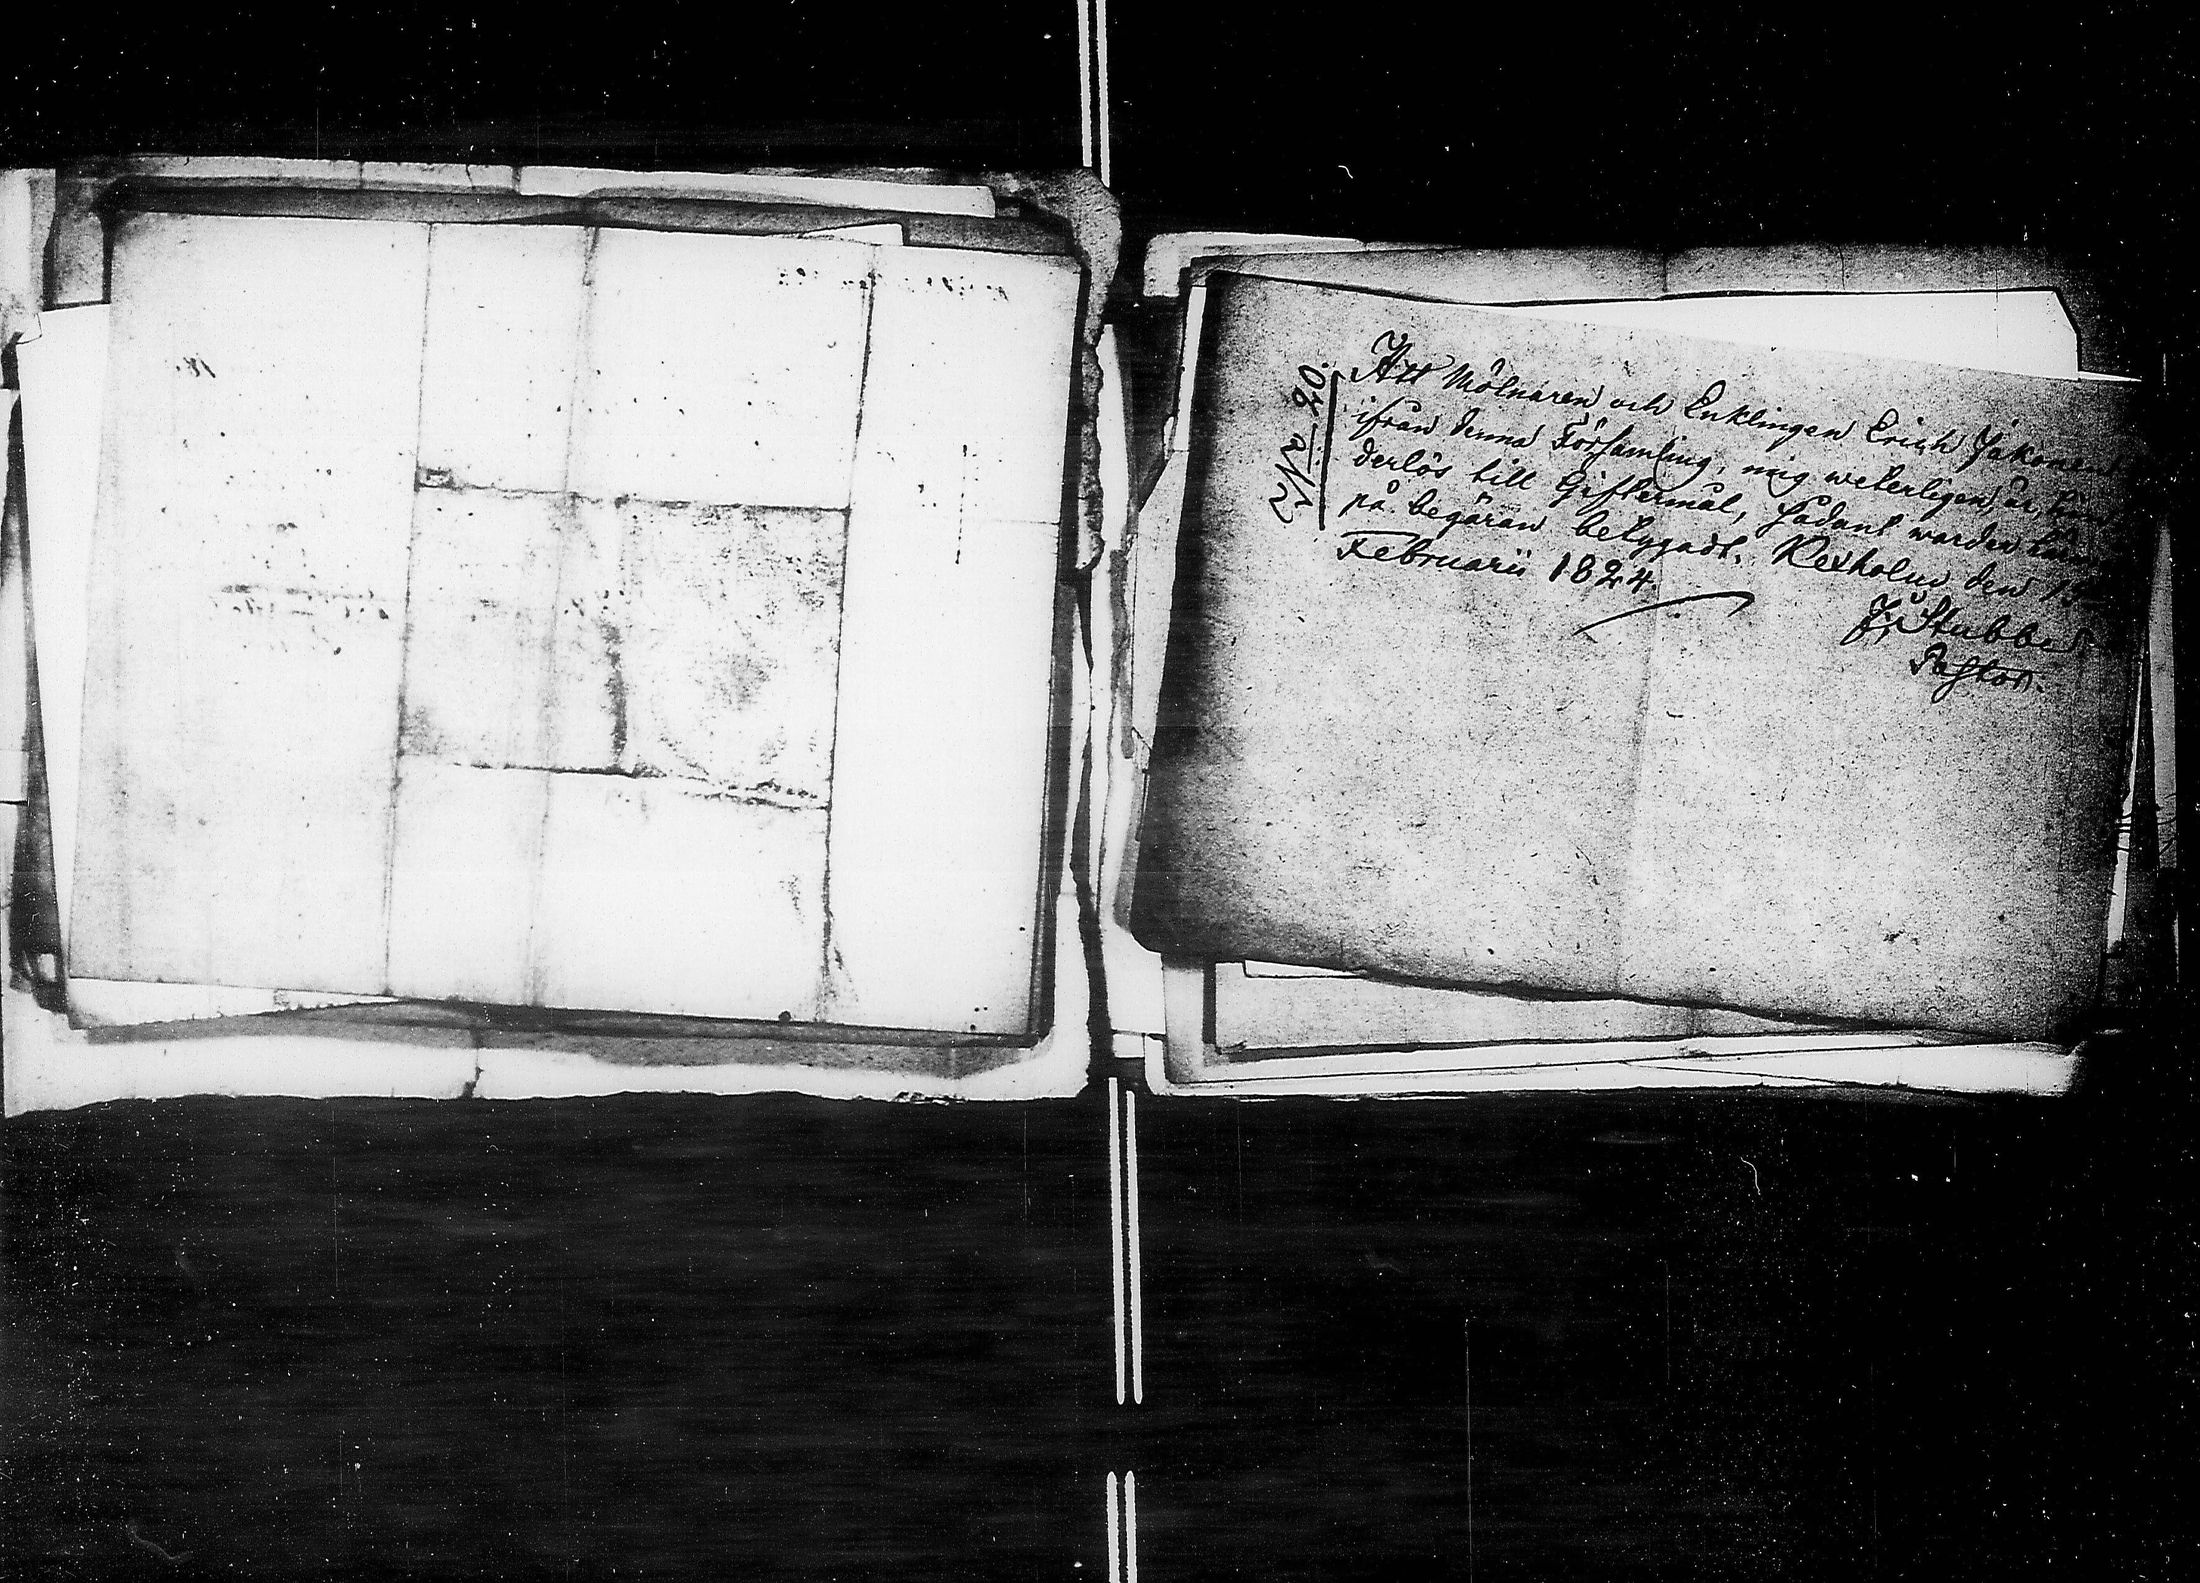 No 20.
Att Mölnaren och Enklingen Erich Jakonen
ifrån denna Församling, mig weterligen, är hin
derlös till Giftermål, sådant warder här
på begäran betygadt. Kexholm den
Februarii 1824
J. Stubbe
Pastor.